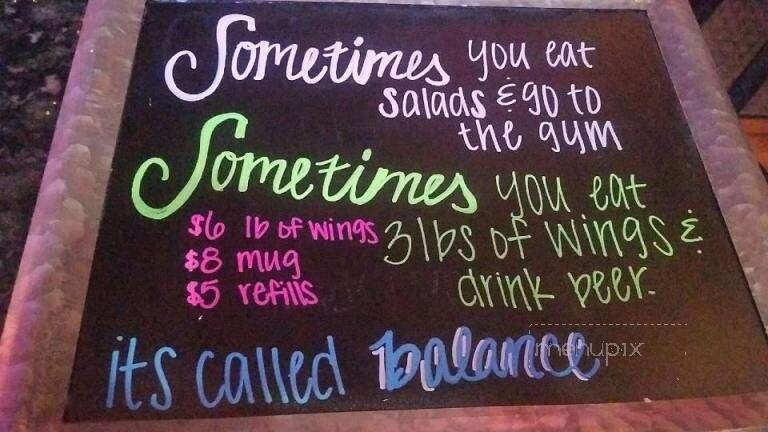 Sometimes you eat
salads & go to
the gym
Sometimes you eat
3lbs of wings &
drink beer.
$6 lb of wings
$8 mug
$5 refills
its called balance
menupix